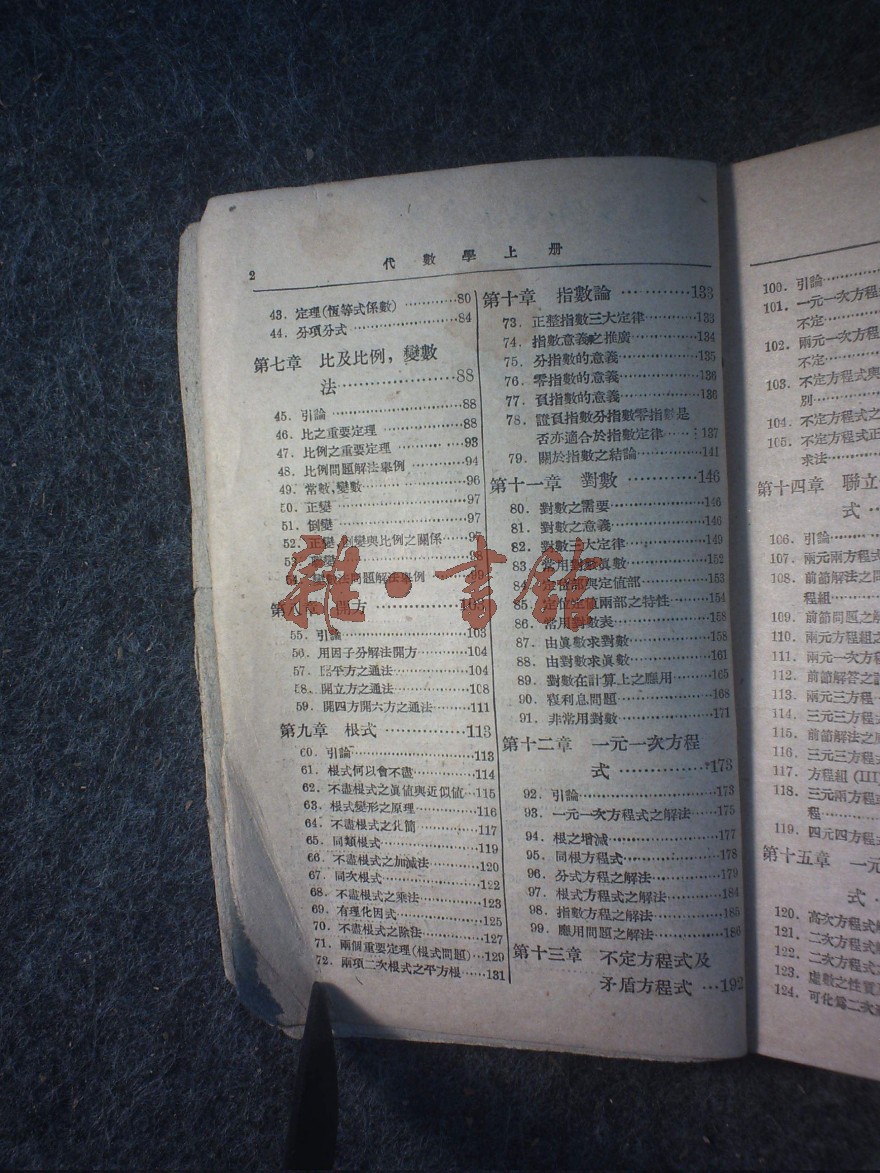 2
代數學上册
43. 定理(恆等式係數)…………80
44. 分項分式…………84
第七章 比及比例，變數
法…………88
45. 引論…………88
46. 比之重要定理…………88
47. 比例之重要定理…………93
48. 比例問題解法舉例…………94
49. 常數,變數…………96
50. 正變…………97
51. 倒變…………97
52. 正變,倒變與比例之關係…97
53. 變…………98
變數法問題解法舉例…………99
第八章 開方…………103
55. 引論…………103
56. 用因子分解法開方…………104
57. 開平方之通法…………104
58. 開立方之通法…………108
59. 開四方開六方之通法…………111
第九章 根式…………113
60. 引論…………113
61. 根式何以會不盡…………114
62. 不盡根式之眞值與近似值…115
63. 根式變形之原理…………116
64. 不盡根式之化簡…………117
65. 同類根式…………119
66. 不盡根式之加減法…………120
67. 同次根式…………122
68. 不盡根式之乘法…………123
69. 有理化因式…………125
70. 不盡根式之除法…………127
71. 兩個重要定理(根式問題)…129
72. 兩項二次根式之平方根……131
第十章 指數論…………133
73. 正整指數三大定律…………133
74. 指數意義之推廣…………134
75. 分指數的意義…………135
76. 零指數的意義…………136
77. 負指數的意義…………136
78. 證負指數分指數零指數是
否亦適合於指數定律……137
79. 關於指數之結論…………141
第十一章 對數…………146
80. 對數之需要…………146
81. 對數之意義…………146
82. 對數三大定律…………149
83. 常用對數眞數…………152
84. 定位部與定值部…………153
85. 定位定值兩部之特性………154
86. 常用對數表…………158
87. 由眞數求對數…………158
88. 由對數求眞數…………161
89. 對數在計算上之應用………165
90. 複利息問題…………168
91. 非常用對數…………171
第十二章 一元一次方程
式…………173
92. 引論…………173
93. 一元一次方程式之解法……175
94. 根之增減…………177
95. 同根方程式…………178
96. 分式方程之解法…………179
97. 根式方程式之解法…………184
98. 指數方程之解法…………185
99. 應用問題之解法…………186
第十三章 不定方程式及
矛盾方程式…192
100. 引論…………
101. 一元一次方程
不定…………
102. 兩元一次方程
不定…………
103. 不定方程式與
別…………
104. 不定方程式之
105. 不定方程式正
求法…………
第十四章 聯立
式…
106. 引論…………
107. 兩元兩方程式
108. 前節解法之問
程組…………
109. 前節問題之解
110. 兩元方程組之
111. 兩元一次方程
112. 前節解答之
113. 兩元三方程…
114. 三元三方程式
115. 前節解法之
116. 三元三方程式
117. 方程組(III)
118. 三元兩方程
程…………
119. 四元四方程
第十五章 一元
式…
120. 高次方程式
121. 二次方程式
122. 二次方程式
123. 虛數之性質
124. 可化爲二次
雜·書館